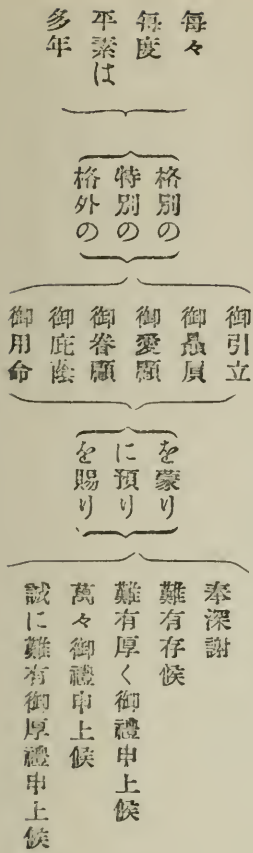 每々
每度
平素は
多年
格別の
特別の
格外の
御引立
御贔屓
御愛顧
御眷顧
御庇蔭
御用命
を蒙り
に預り
を賜り
奉深謝
難有存候
難有厚く御禮申上候
萬々御禮申上候
誠に難有御厚禮申上候